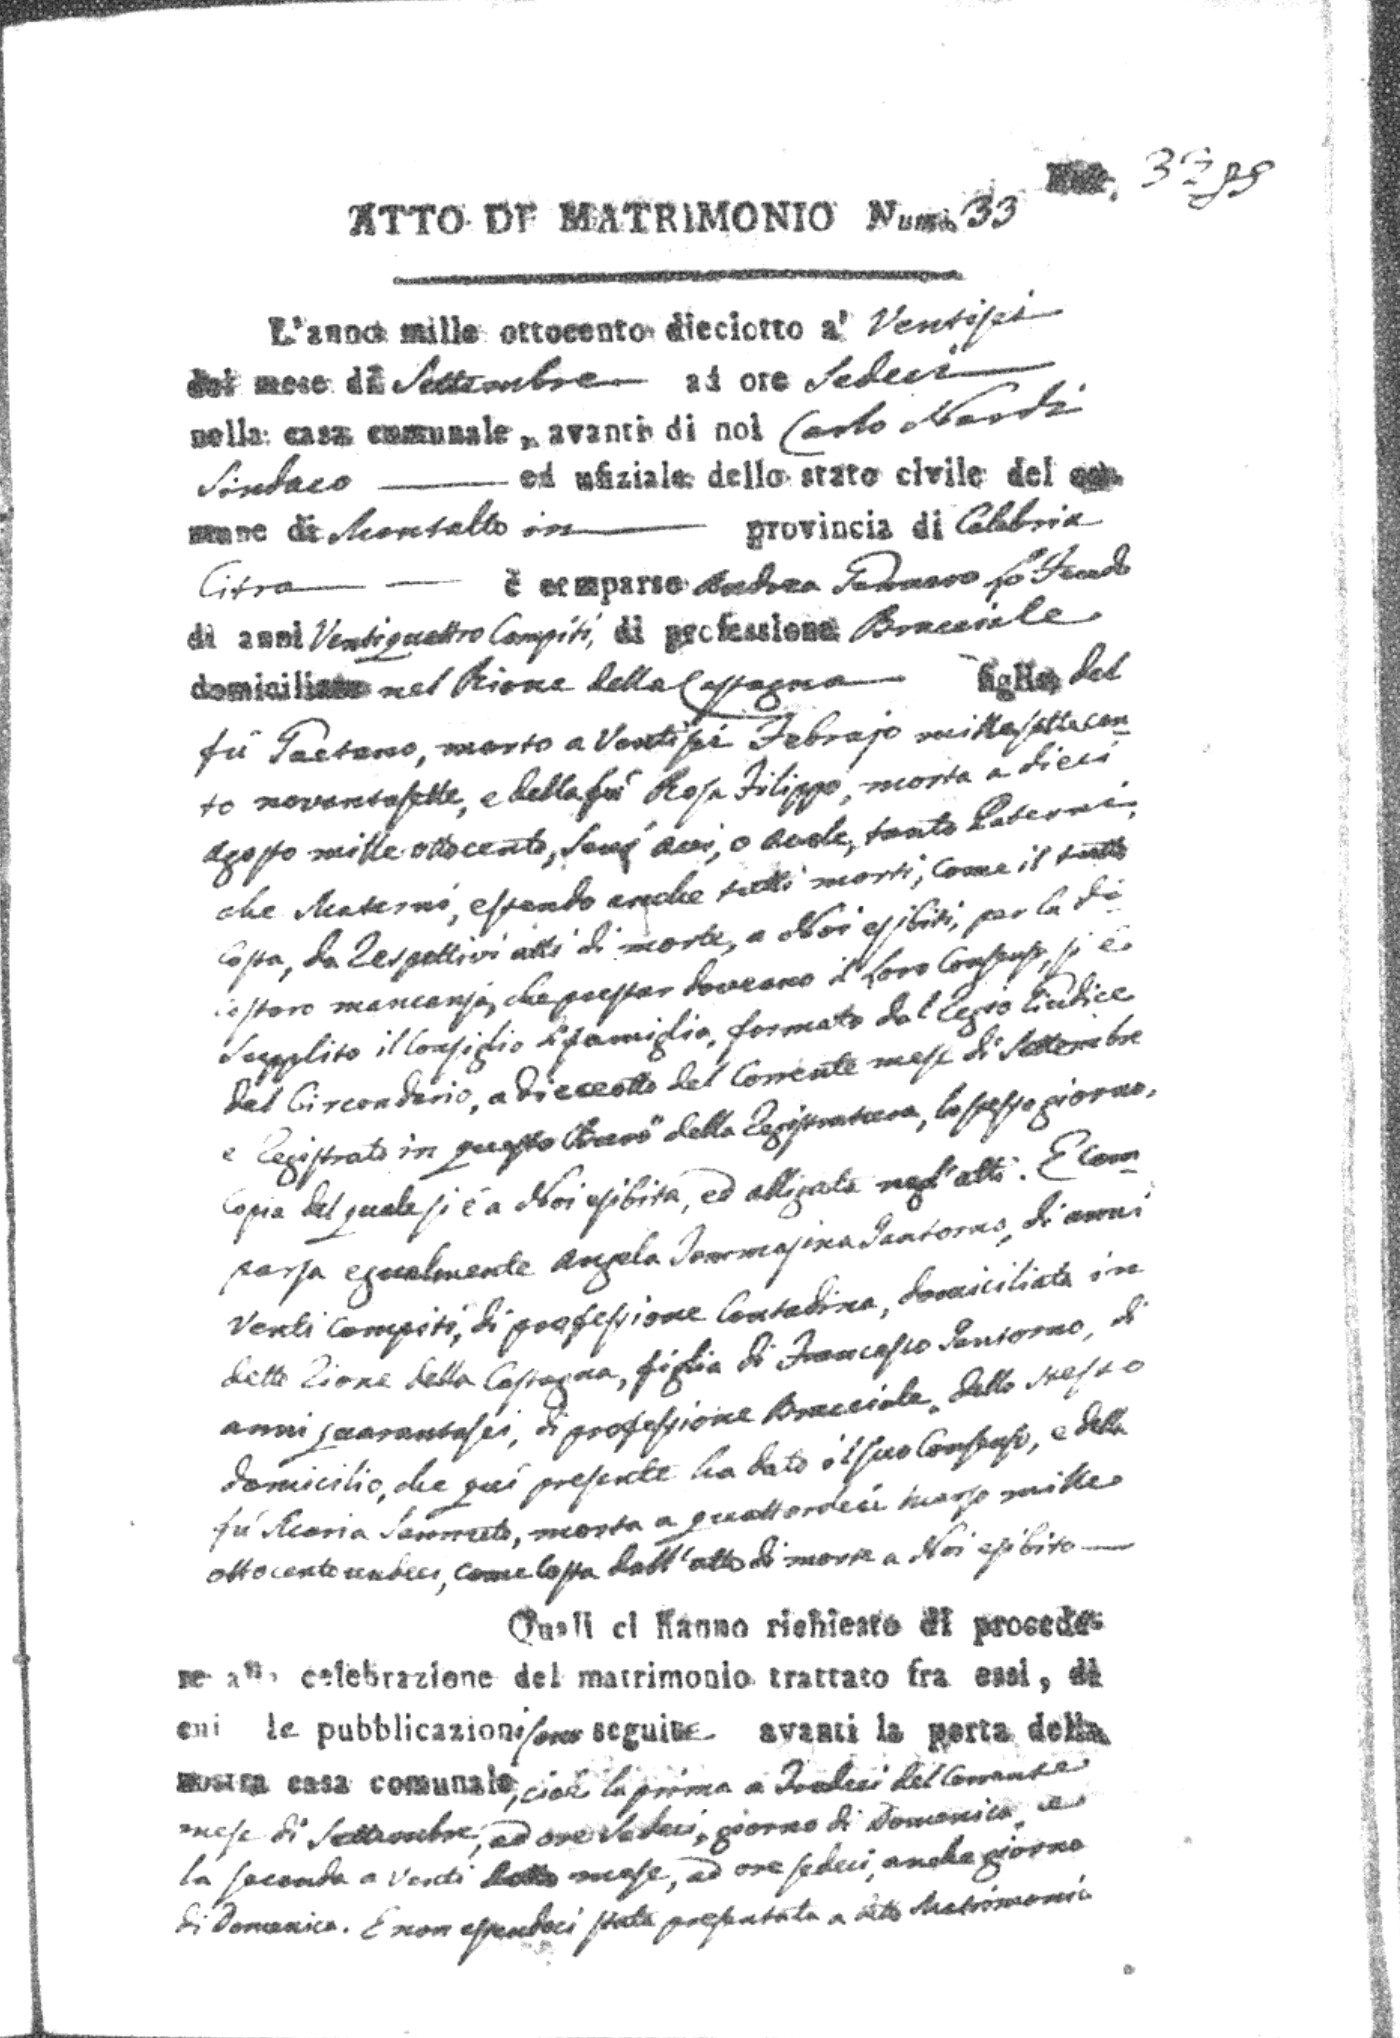 3289
ATTO DI MATRIMONIO Num. 33
L'anno mille ottocento dieciotto a' Ventisei
del mese di Settembre ad ore Sedeci
nella casa comunale, avanti di noi Carlo Nardi
Sindaco ed ufiziale dello stato civile del co-
mune di Montalto in provincia di Calabria
Citra è comparso Andrea
di anni Ventiquattro Compiti, di professione Bracciale
domiciliato nel Rione della Castagna figlio del
fù Gaetano, morto a Ventisei Febrajo millesettecen-
to novantasette, e della fù Rosa Filippo, morta a dieci
Agosto mille ottocento, Senz' avi, o avole, tanto Paterni,
che Materni, essendo anche tutti morti, come il tutto
costa, da respettivi atti di morte, a Noi esibiti, per la di
costoro mancanza, che prestar doveano il loro Consenso, si è
Supplito il Consiglio di famiglia, formato dal Regio Giudice
del Circondario, a dieceotto del Corrente mese di Settembre
e Registrato in questo della Registratura, lo stesso giorno,
Copia del quale si è a Noi esibita, ed alligata negl' atti. E Com-
parsa egualmente Angela Tommasina Santorno, di anni
Venti compiti, di professione Contadina, domiciliata in
detto Rione della Castagna, figlia di Francesco Santorno, di
anni quarantasei, di professione Bracciale, dello stesso
domicilio, che quì presente ha dato il suo Consenso, e della
fù Maria Sammuto, morta a quattordeci Marzo mille
ottocento undeci, come costa dall' atto di morte a Noi esibito
Quali ci hanno richiesto di procede-
re alla celebrazione del matrimonio trattato fra essi, di
cui le pubblicazioni sono seguite avanti la porta della
nostra casa comunale, cioè la prima a Tredeci del Corrente
mese di Settembre, ad ore Sedeci, giorno di Domenica, e
la seconda a Venti detto mese, ad ore sedeci, anche giorno
di Domenica. E non essendoci stata presentata a detto Matrimonio